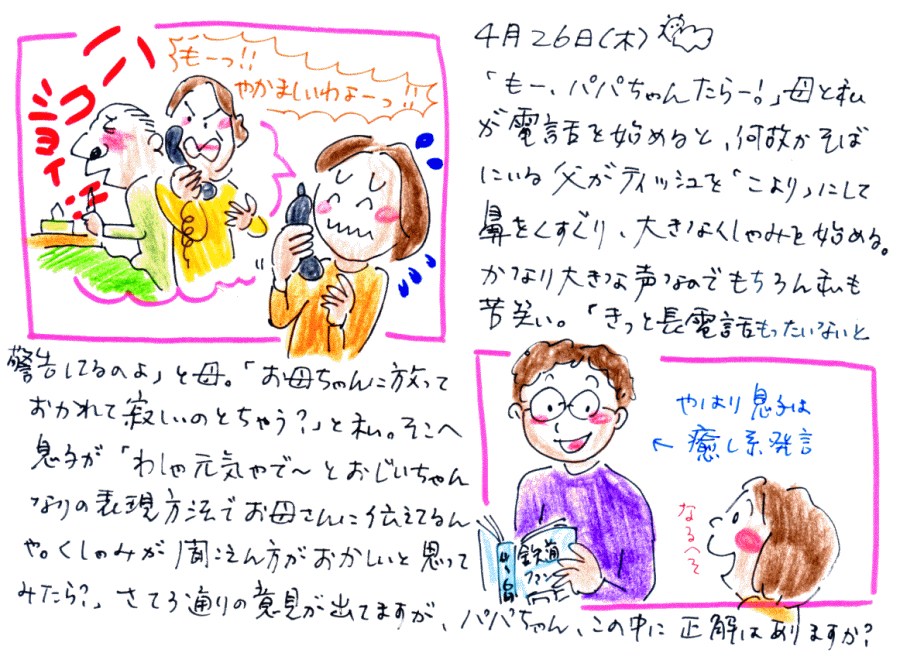 4月26日(木)
「もー、パパちゃんたらー!」母と私
が電話を始めると、何故かそば
にいる父がティッシュを「こより」にして
鼻をくすぐり、大きなくしゃみを始める。
かなり大きな声なのでもちろん私も
苦笑い。「きっと長電話もったいないと
警告してるのよ」と母。「お母ちゃんに放って
おかれて寂しいのとちゃう?」と私。そこへ
息子が「わしゃ元気やで〜とおじいちゃん
なりの表現方法でお母さんに伝えてるん
や。くしゃみが聞こえん方がおかしいと思って
みたら?」さて3通りの意見が出てますが、パパちゃん、この中に正解はありますか?
ハークショイ
もーっ!!
やかましいわよーっ!!
やはり息子は
←癒し系発言
なるへそ
鉄道
ファン